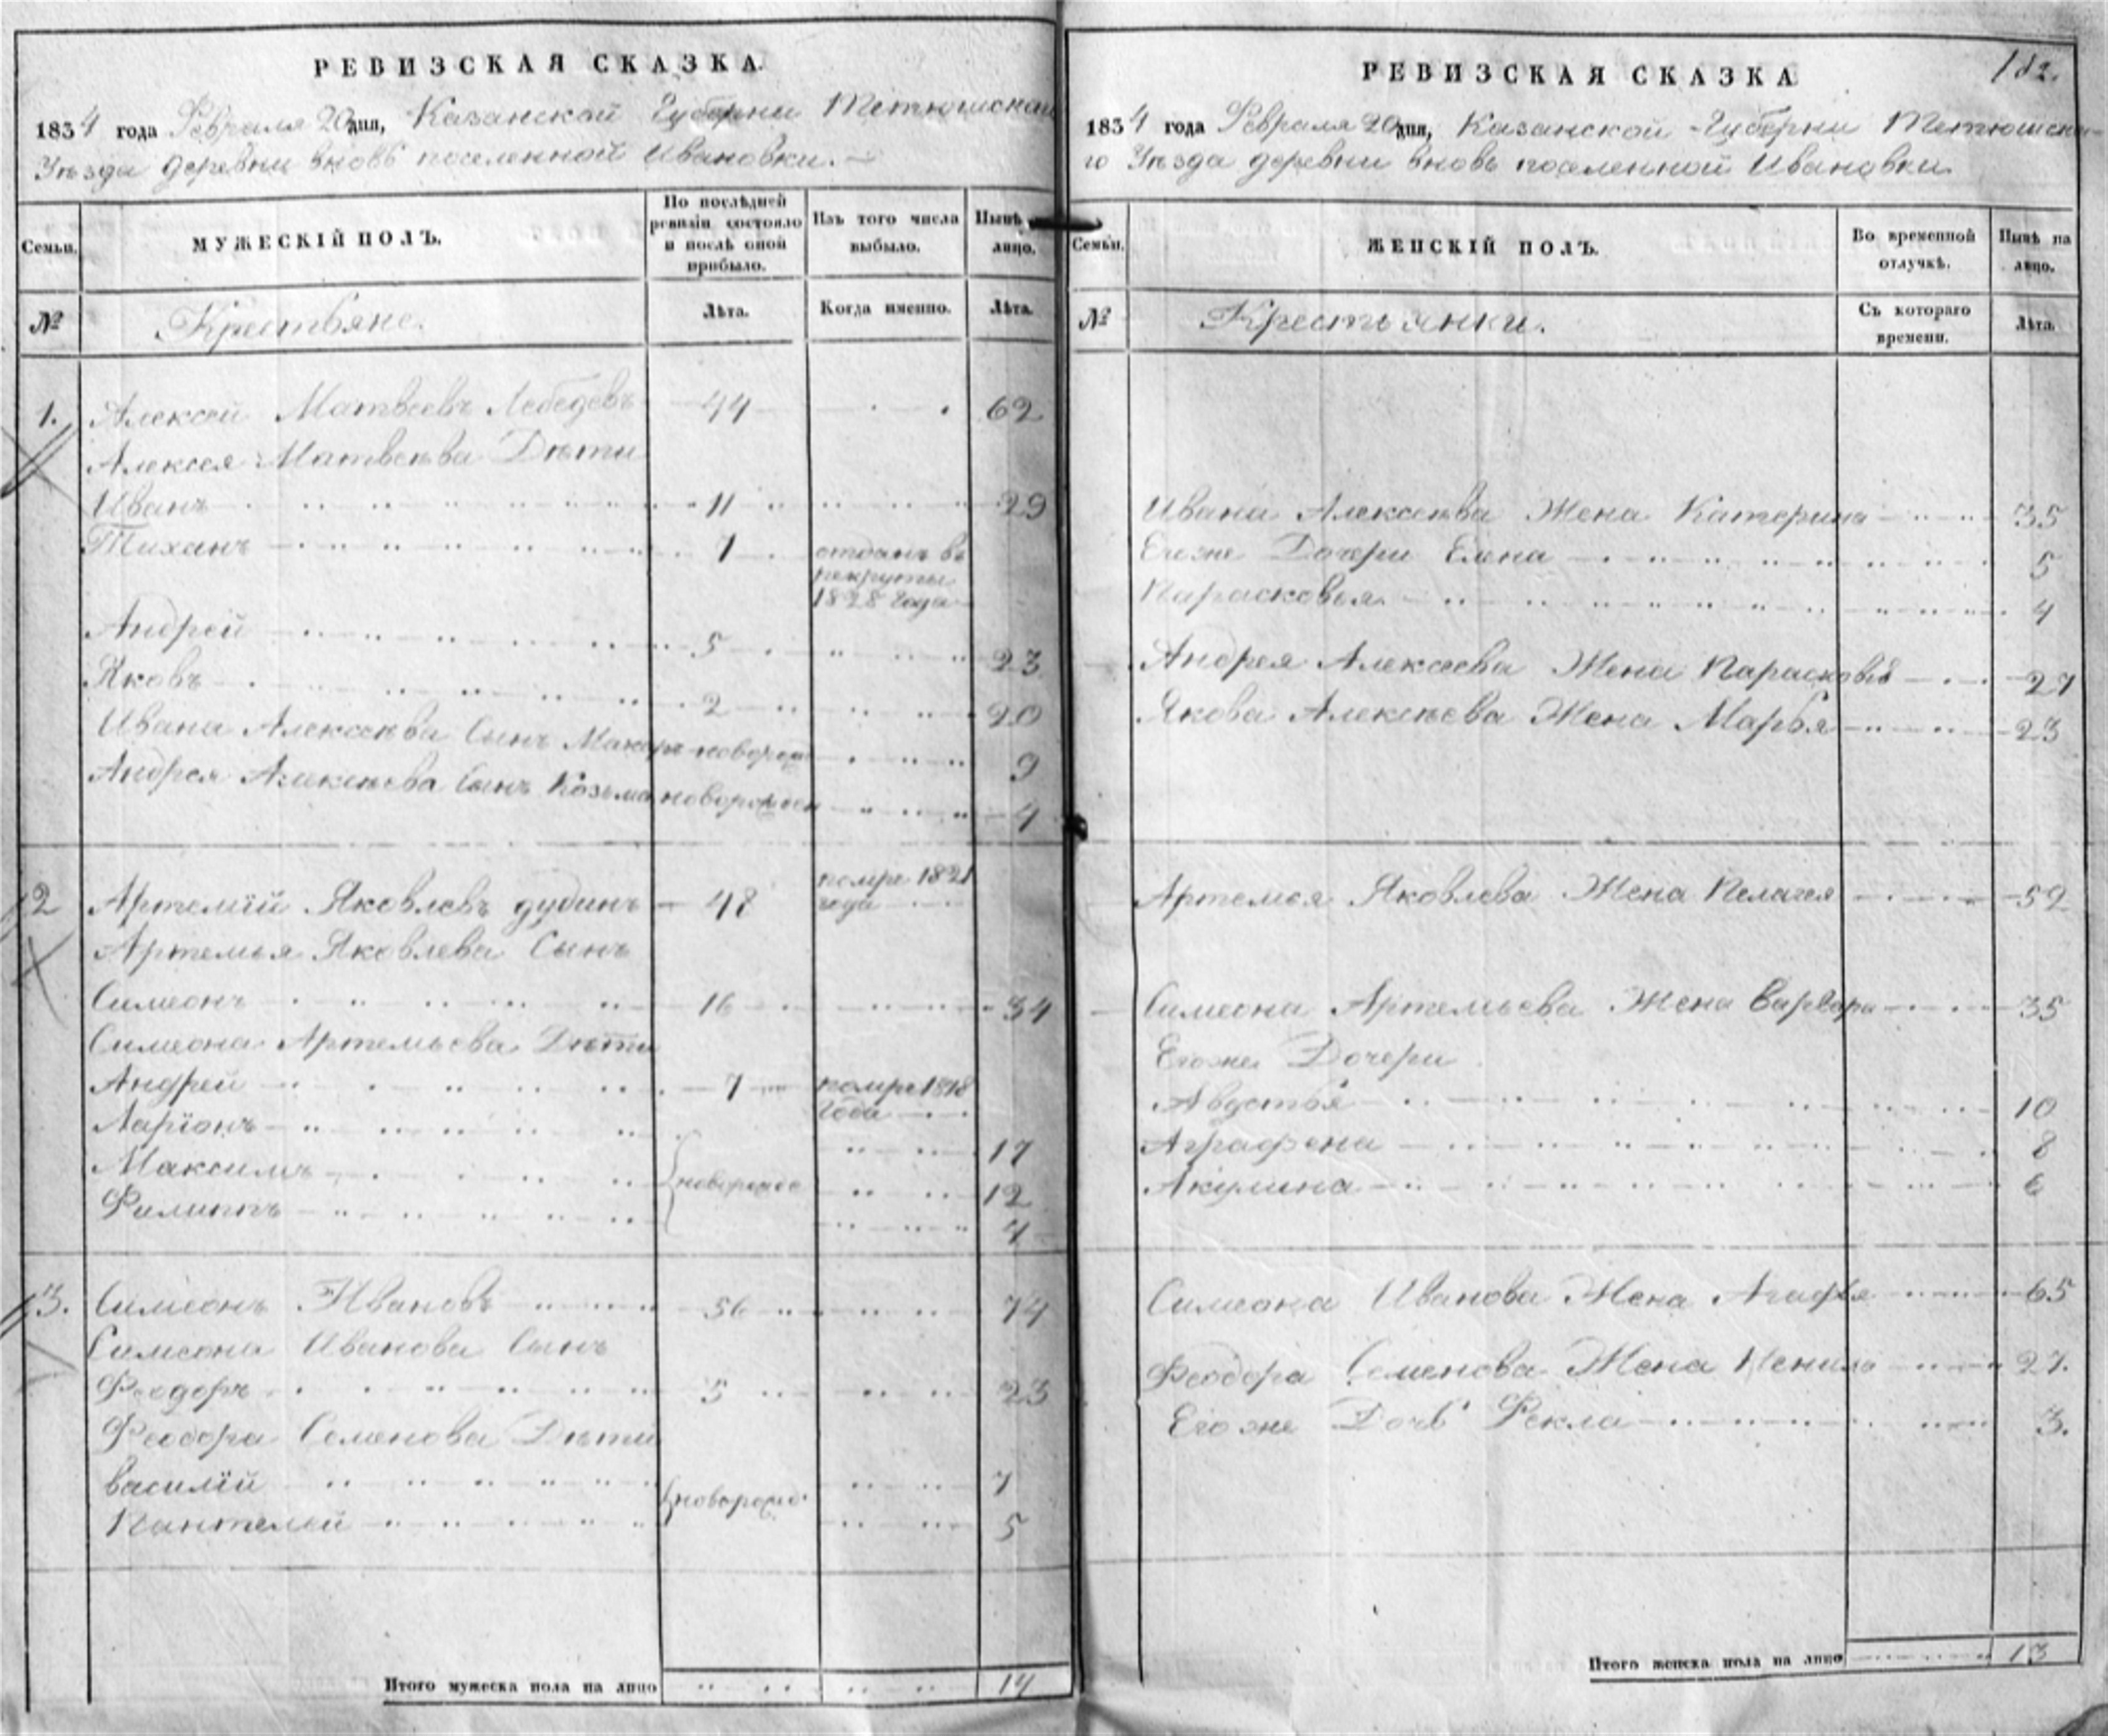 РЕВИЗСКАЯ СКАЗКА.
1834 года Февраля 20 дня, Казанской Губерни Тетюшскаго
Уѣзда деревни вновь поселенной Ивановки.
Семьи. МУЖЕСКІЙ ПОЛЪ. По послѣдней ревизіи состояло и послѣ оной прибыло. Изъ того числа выбыло. Нынѣ лицо.
№ Крестьяне. Лѣта. Когда именно. Лѣта.
1. Алексей Матвеевъ Лебедевъ 44 62
Алексея Матвеѣва Дѣти
Иванъ 11 29
Тиханъ 7 отданъ въ
рекруты
1828 года
Андрей 5 23
Яковъ 2 20
Ивана Алексеѣва Сынъ Макаръ новорож 9
Андрея Алексѣева Сынъ Козьма новорожден 4
2 Артемій Яковлевъ дудинъ 48 помре 1821
года
Артемья Яковлева Сынъ
Симеонъ 16 34
Симеона Артемьева Дѣти
Андрей 7 помре 1818
года
Ларіонъ 17
Максимъ новорожде 12
Филиппъ 4
3. Симеонъ Ивановъ 56 74
Симеона Иванова Сынъ
Феодоръ 5 23
Феодора Семенова Дѣти
Василій новорожд 7
Пантелей 5
Итого мужеска пола на лицо 17
182.
РЕВИЗСКАЯ СКАЗКА
1834 года Февраля 20 дня, Казанской Губерни Тетюшска-
го Уѣзда деревни вновь поселенной Ивановки
Семьи. ЖЕНСКІЙ ПОЛЪ. Во временной отлучкѣ. Нынѣ на лицо.
№ Крестьянки. Съ котораго времени. Лѣта.
Ивана Алексеѣва Жена Катерина 35
Егоже Дочери Елена 5
Парасковья 4
Андрея Алексеева Жена Парасковья 27
Якова Алексѣева Жена Марья 23
Артемья Яковлева Жена Пелагея 52
Симеона Артемьева Жена Варвара 35
Егоже Дочери
Авдотья 10
Аграфена 8
Акулина 6
Симеона Иванова Жена Агафья 65
Феодора Семенова Жена Ненила 27.
Егоже Дочь Фекла 3.
Итого женска пола на лицо 13